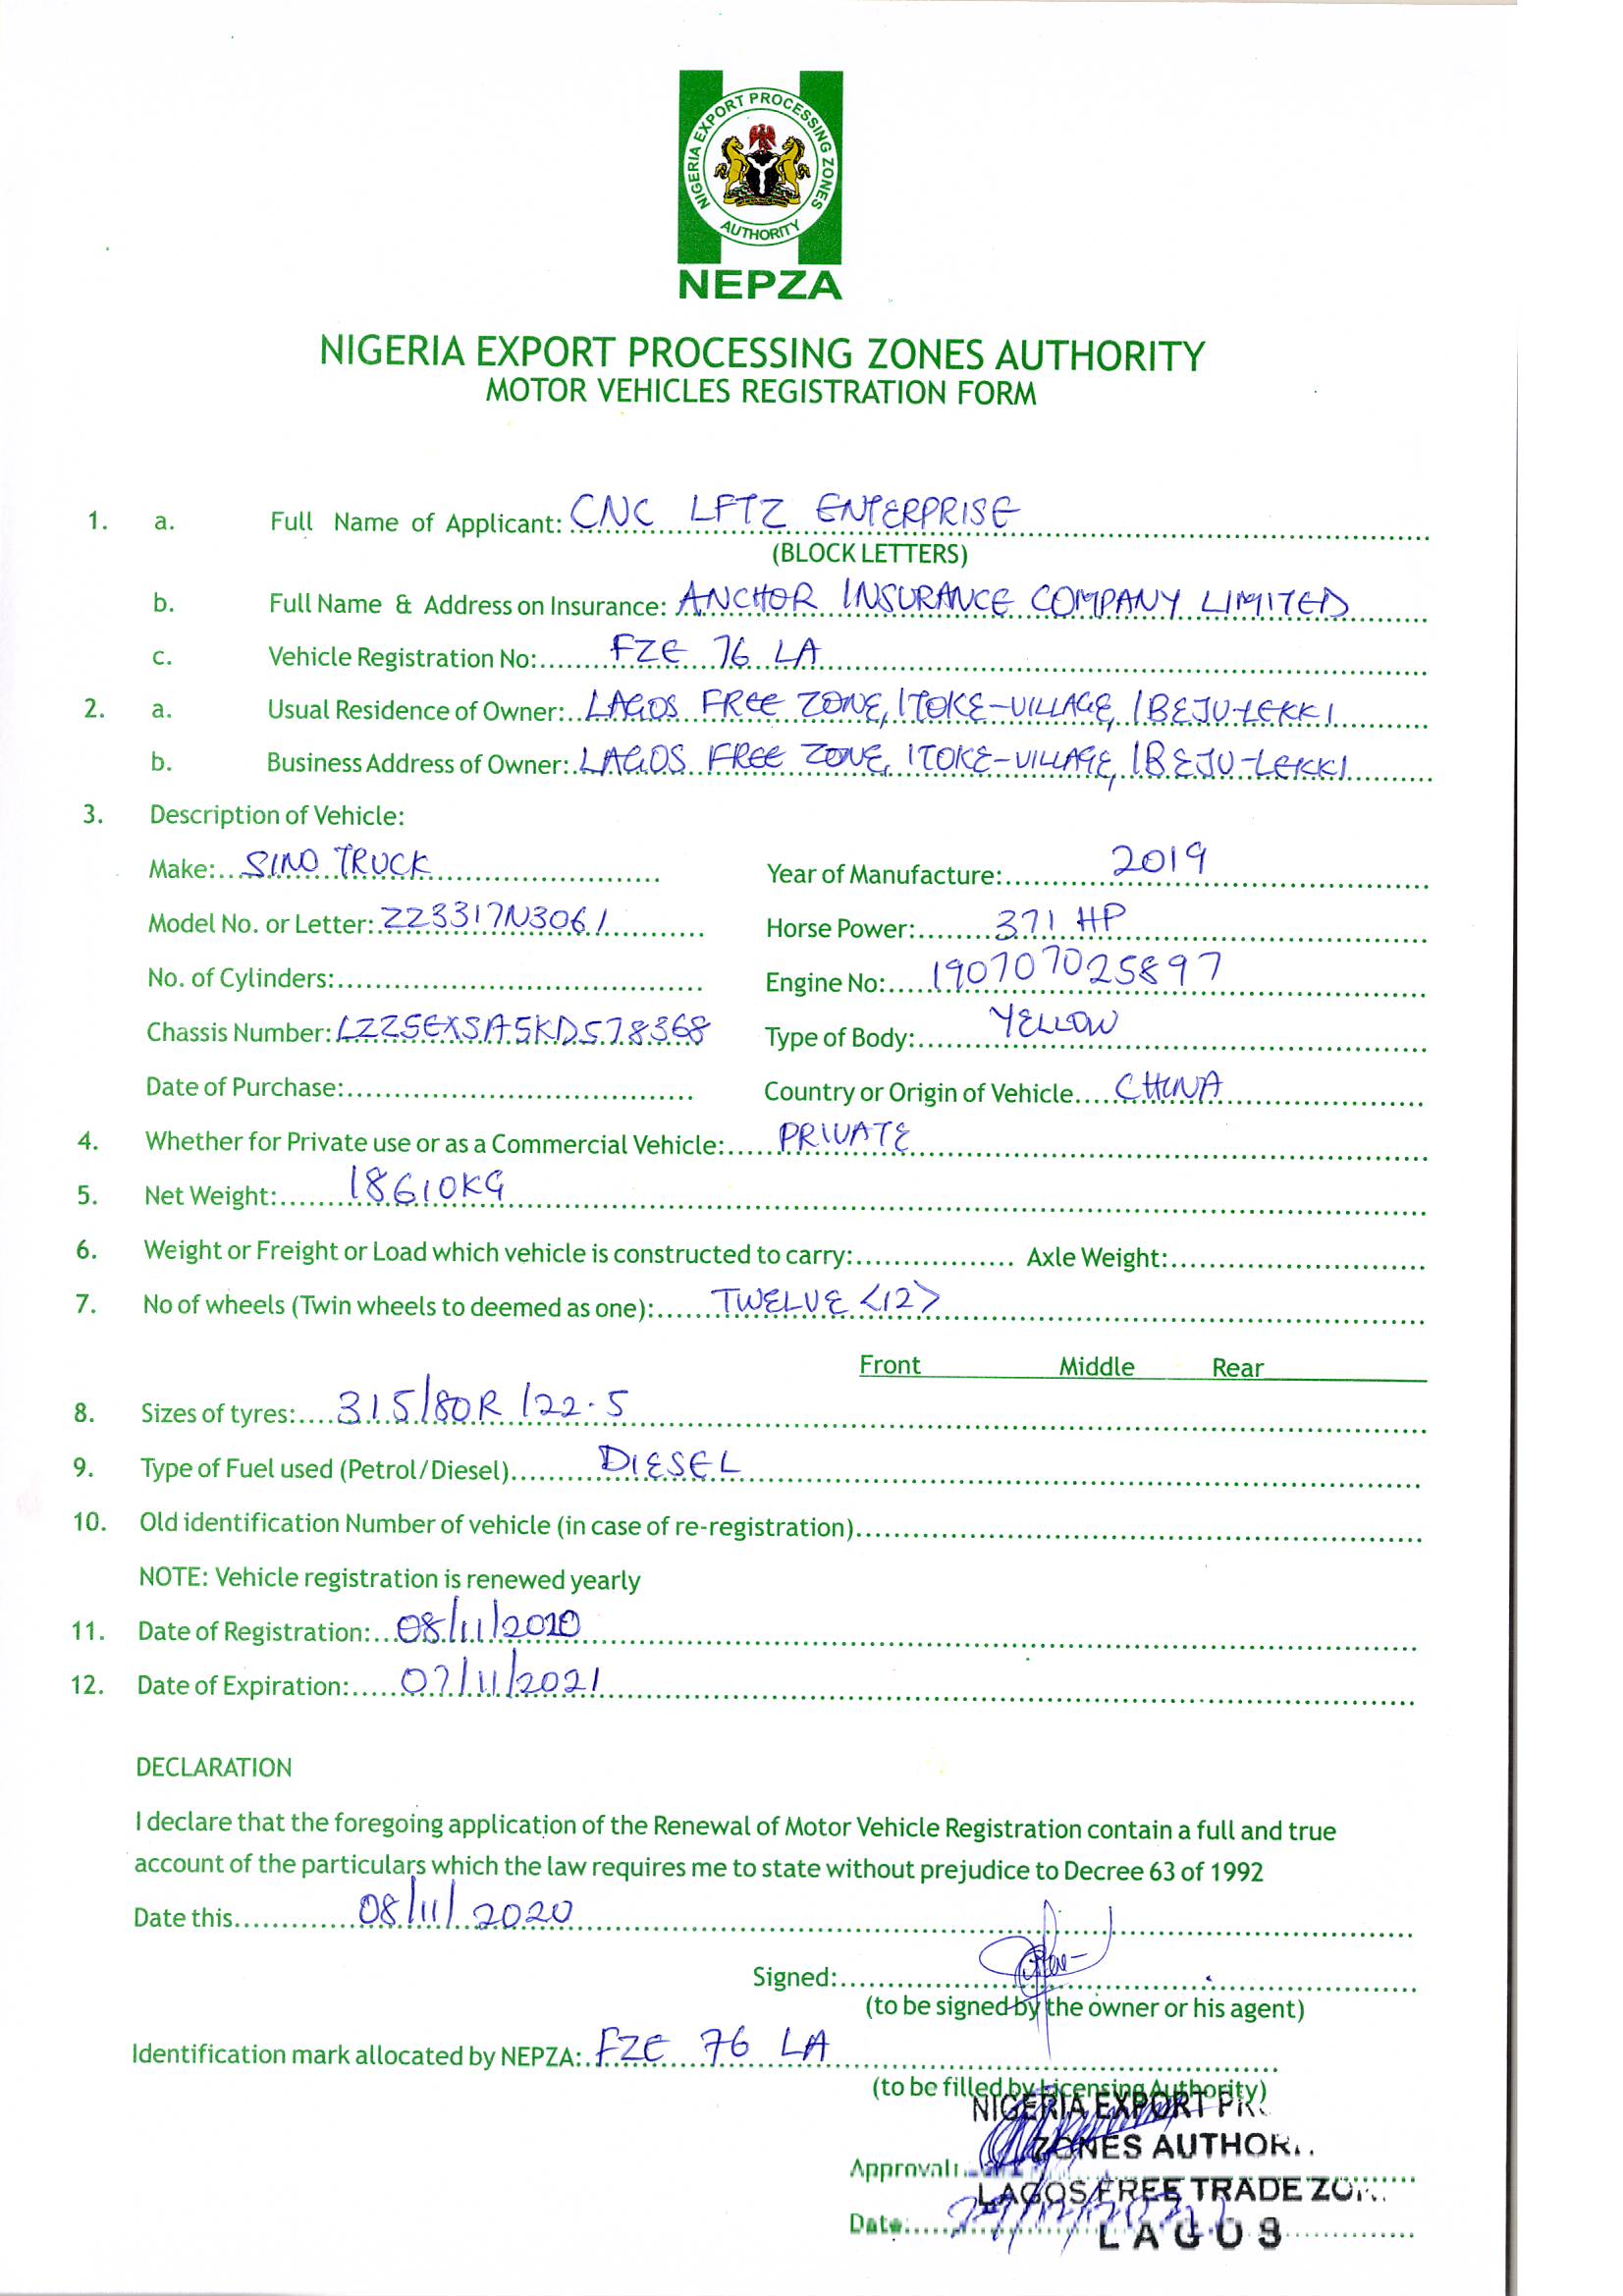 NIGERIA EXPORT PROCESSING ZONES
AUTHORITY
NEPZA
NIGERIA EXPORT PROCESSING ZONES AUTHORITY
MOTOR VEHICLES REGISTRATION FORM
1. a. Full Name of Applicant: CNC LFTZ ENTERPRISE
(BLOCK LETTERS)
b. Full Name & Address on Insurance: ANCHOR INSURANCE COMPANY LIMITED
c. Vehicle Registration No: FZE 76 LA
2. a. Usual Residence of Owner: LAGOS FREE ZONE, ITOKE-VILLAGE, IBEJU-LEKKI
b. Business Address of Owner: LAGOS FREE ZONE, ITOKE-VILLAGE, IBEJU-LEKKI
3. Description of Vehicle:
Make: SINO TRUCK Year of Manufacture: 2019
Model No. or Letter: ZZ3317N3061 Horse Power: 371 HP
No. of Cylinders: Engine No: 190707025897
Chassis Number: LZZ5EXSA5KD578368 Type of Body: YELLOW
Date of Purchase: Country or Origin of Vehicle CHINA
4. Whether for Private use or as a Commercial Vehicle: PRIVATE
5. Net Weight: 18610KG
6. Weight or Freight or Load which vehicle is constructed to carry: Axle Weight:
7. No of wheels (Twin wheels to deemed as one): TWELVE <12>
Front Middle Rear
8. Sizes of tyres: 315/80R/22.5
9. Type of Fuel used (Petrol/Diesel) DIESEL
10. Old identification Number of vehicle (in case of re-registration)
NOTE: Vehicle registration is renewed yearly
11. Date of Registration: 08/11/2020
12. Date of Expiration: 07/11/2021
DECLARATION
I declare that the foregoing application of the Renewal of Motor Vehicle Registration contain a full and true
account of the particulars which the law requires me to state without prejudice to Decree 63 of 1992
Date this 08/11/2020
Signed:
(to be signed by the owner or his agent)
Identification mark allocated by NEPZA: FZE 76 LA
(to be filled by Licensing Authority)
NIGERIA EXPORT
ZONES
Approval:
LAGOS FREE TRADE
Date:
LAGOS